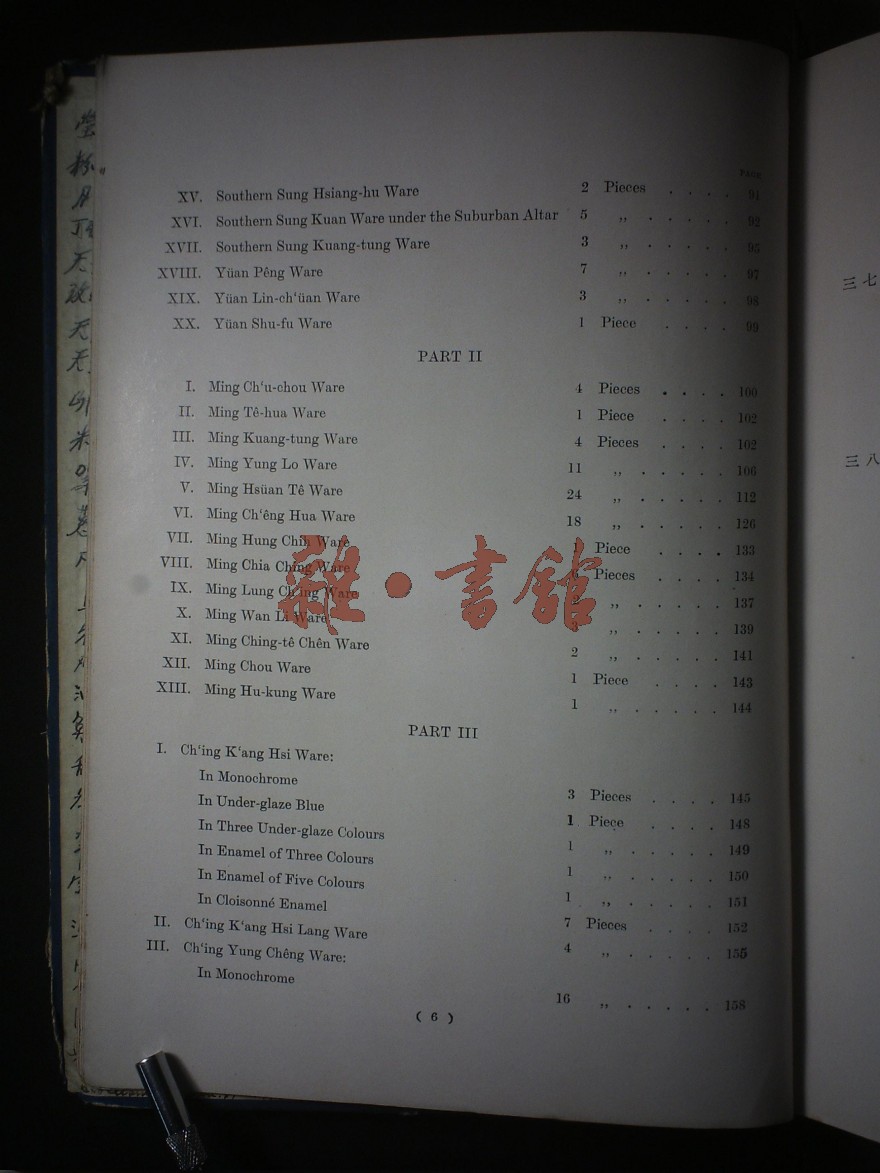 PAGE
XV. Southern Sung Hsiang-hu Ware 2 Pieces . . . . 91
XVI. Southern Sung Kuan Ware under the Suburban Altar 5 ,, . . . . . 92
XVII. Southern Sung Kuang-tung Ware 3 ,, . . . . . 95
XVIII. Yüan Pêng Ware 7 ,, . . . . . 97
XIX. Yüan Lin-ch‘üan Ware 3 ,, . . . . . 98
XX. Yüan Shu-fu Ware 1 Piece . . . . 99
PART II
I. Ming Ch‘u-chou Ware 4 Pieces . . . . 100
II. Ming Tê-hua Ware 1 Piece . . . . 102
III. Ming Kuang-tung Ware 4 Pieces . . . . 102
IV. Ming Yung Lo Ware 11 ,, . . . . . 106
V. Ming Hsüan Tê Ware 24 ,, . . . . . 112
VI. Ming Ch‘êng Hua Ware 18 ,, . . . . . 126
VII. Ming Hung Chih Ware 1 Piece . . . . 133
VIII. Ming Chia Ching Ware Pieces . . . . 134
IX. Ming Lung Ch‘ing Ware 2 ,, . . . . . 137
X. Ming Wan Li Ware 3 ,, . . . . . 139
XI. Ming Ching-tê Chên Ware 2 ,, . . . . . 141
XII. Ming Chou Ware 1 Piece . . . . 143
XIII. Ming Hu-kung Ware 1 ,, . . . . . 144
PART III
I. Ch‘ing K‘ang Hsi Ware:
In Monochrome 3 Pieces . . . . 145
In Under-glaze Blue 1 Piece . . . . 148
In Three Under-glaze Colours 1 ,, . . . . . 149
In Enamel of Three Colours 1 ,, . . . . . 150
In Enamel of Five Colours 1 ,, . . . . . 151
In Cloisonné Enamel 7 Pieces . . . . 152
II. Ch‘ing K‘ang Hsi Lang Ware 4 ,, . . . . . 155
III. Ch‘ing Yung Chêng Ware:
In Monochrome 16 ,, . . . . . 158
( 6 )
三七
三八
雜·書館